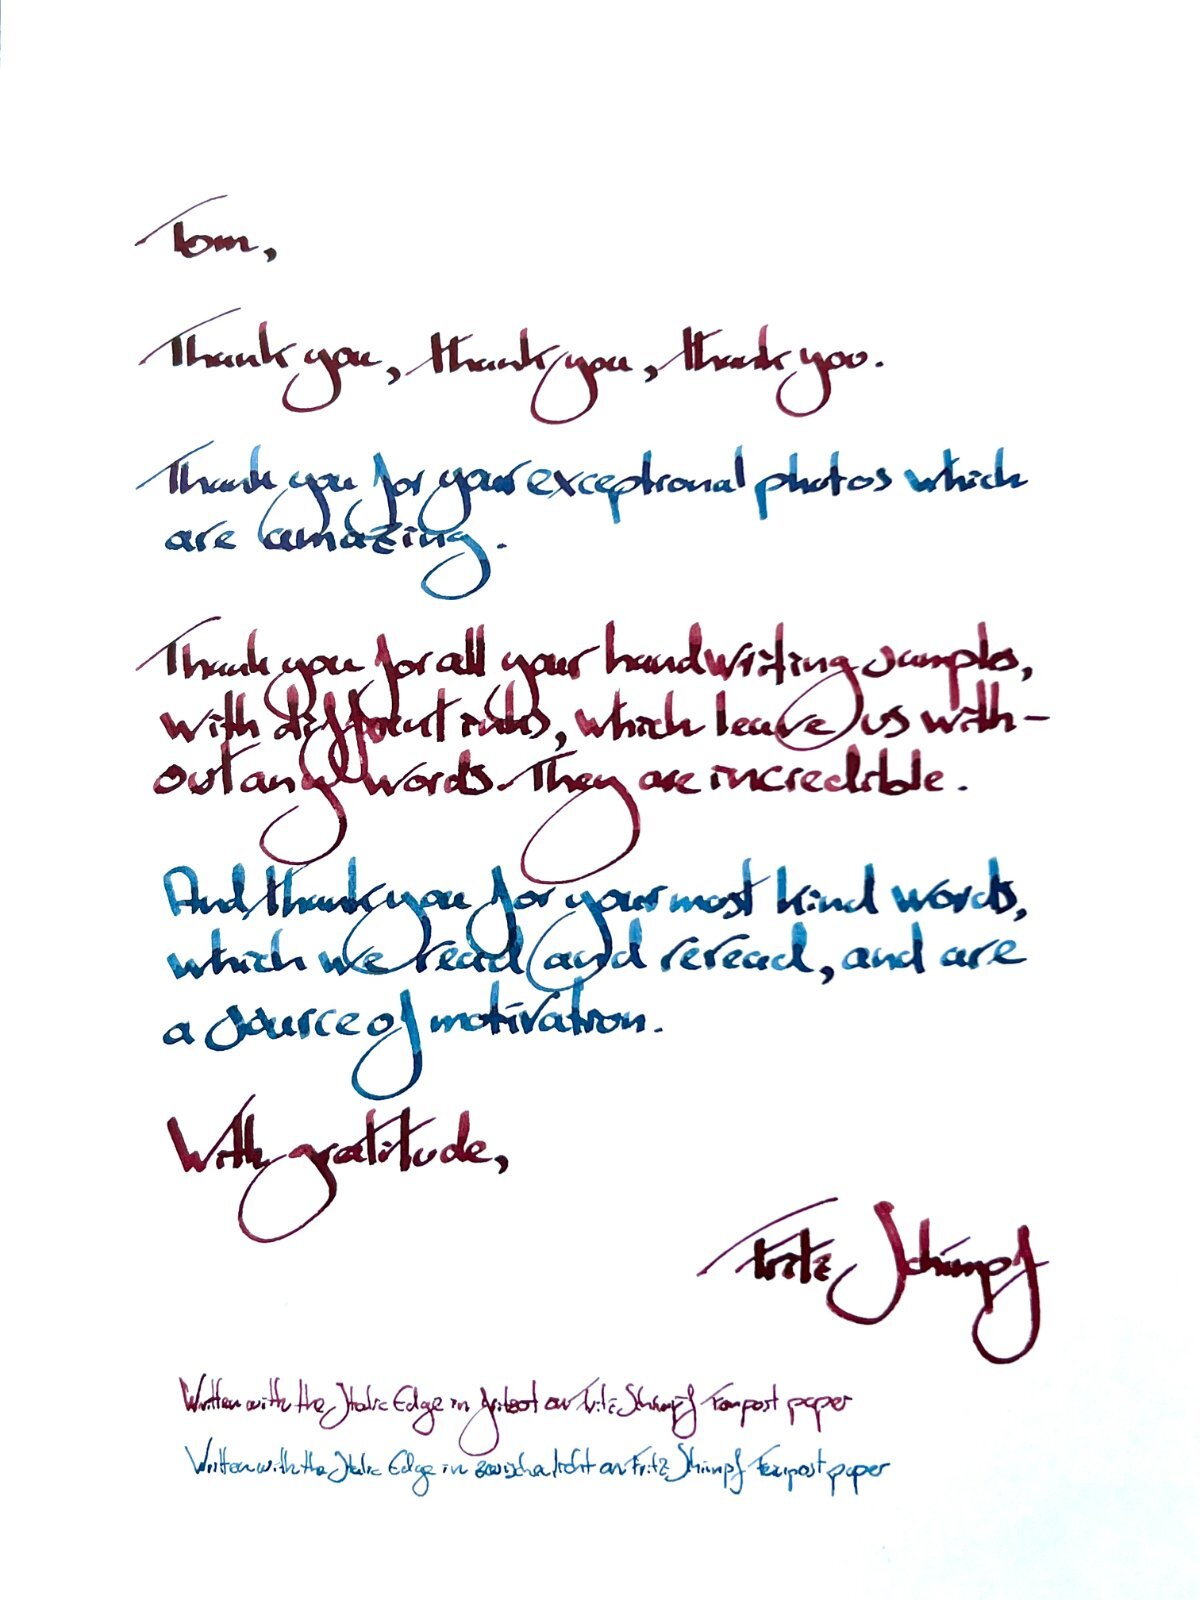 Tom,
Thank you, thank you, thank you.
Thank you for your exceptional photos which
are amazing.
Thank you for all your handwriting samples,
with different inks, which leave us with-
out any words. They are incredible.
And thank you for your most kind words,
which we read and reread, and are
a source of motivation.
With gratitude,
Fritz Schimpf
Written with the Italic Edge in on Fritz Schimpf Feinpost paper
Written with the Italic Edge in Zwischenlicht on Fritz Schimpf Feinpost paper